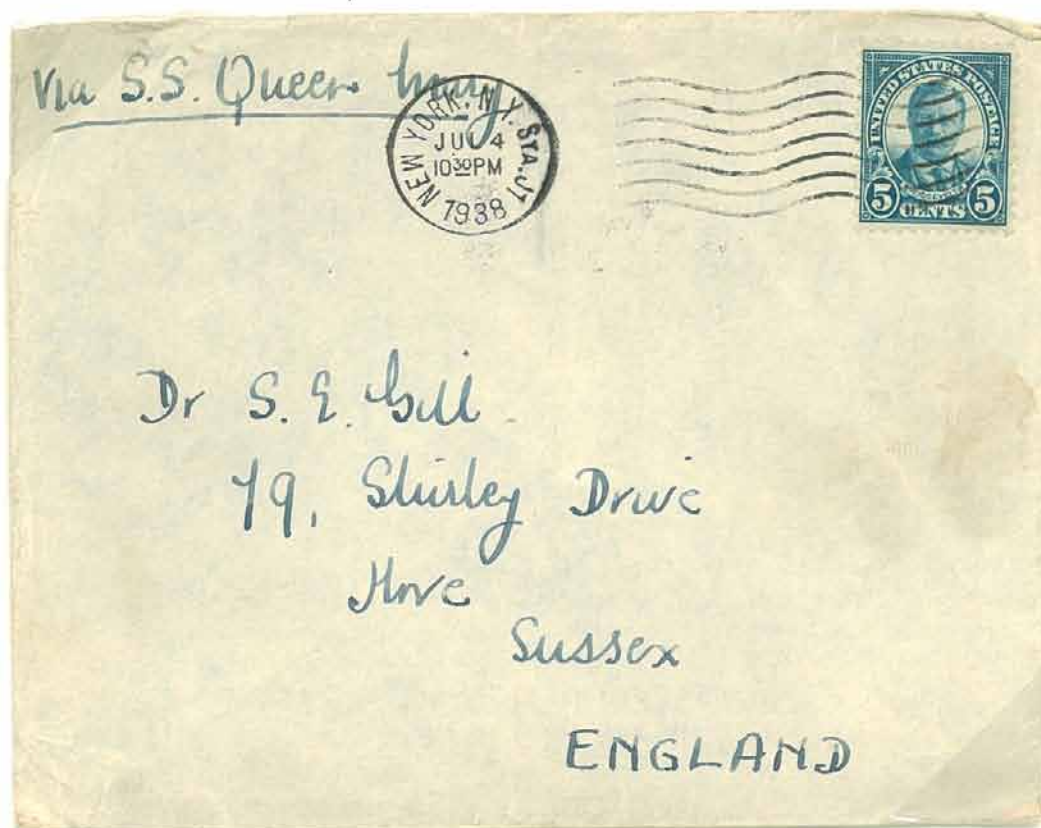 Via S.S. Queen Mary
NEW YORK, N.Y. STA. J1
JUL 4
10 30 PM
1938
UNITED STATES POSTAGE
5 CENTS 5
Dr S. E. Gill
79, Shirley Drive
Hove
Sussex
ENGLAND